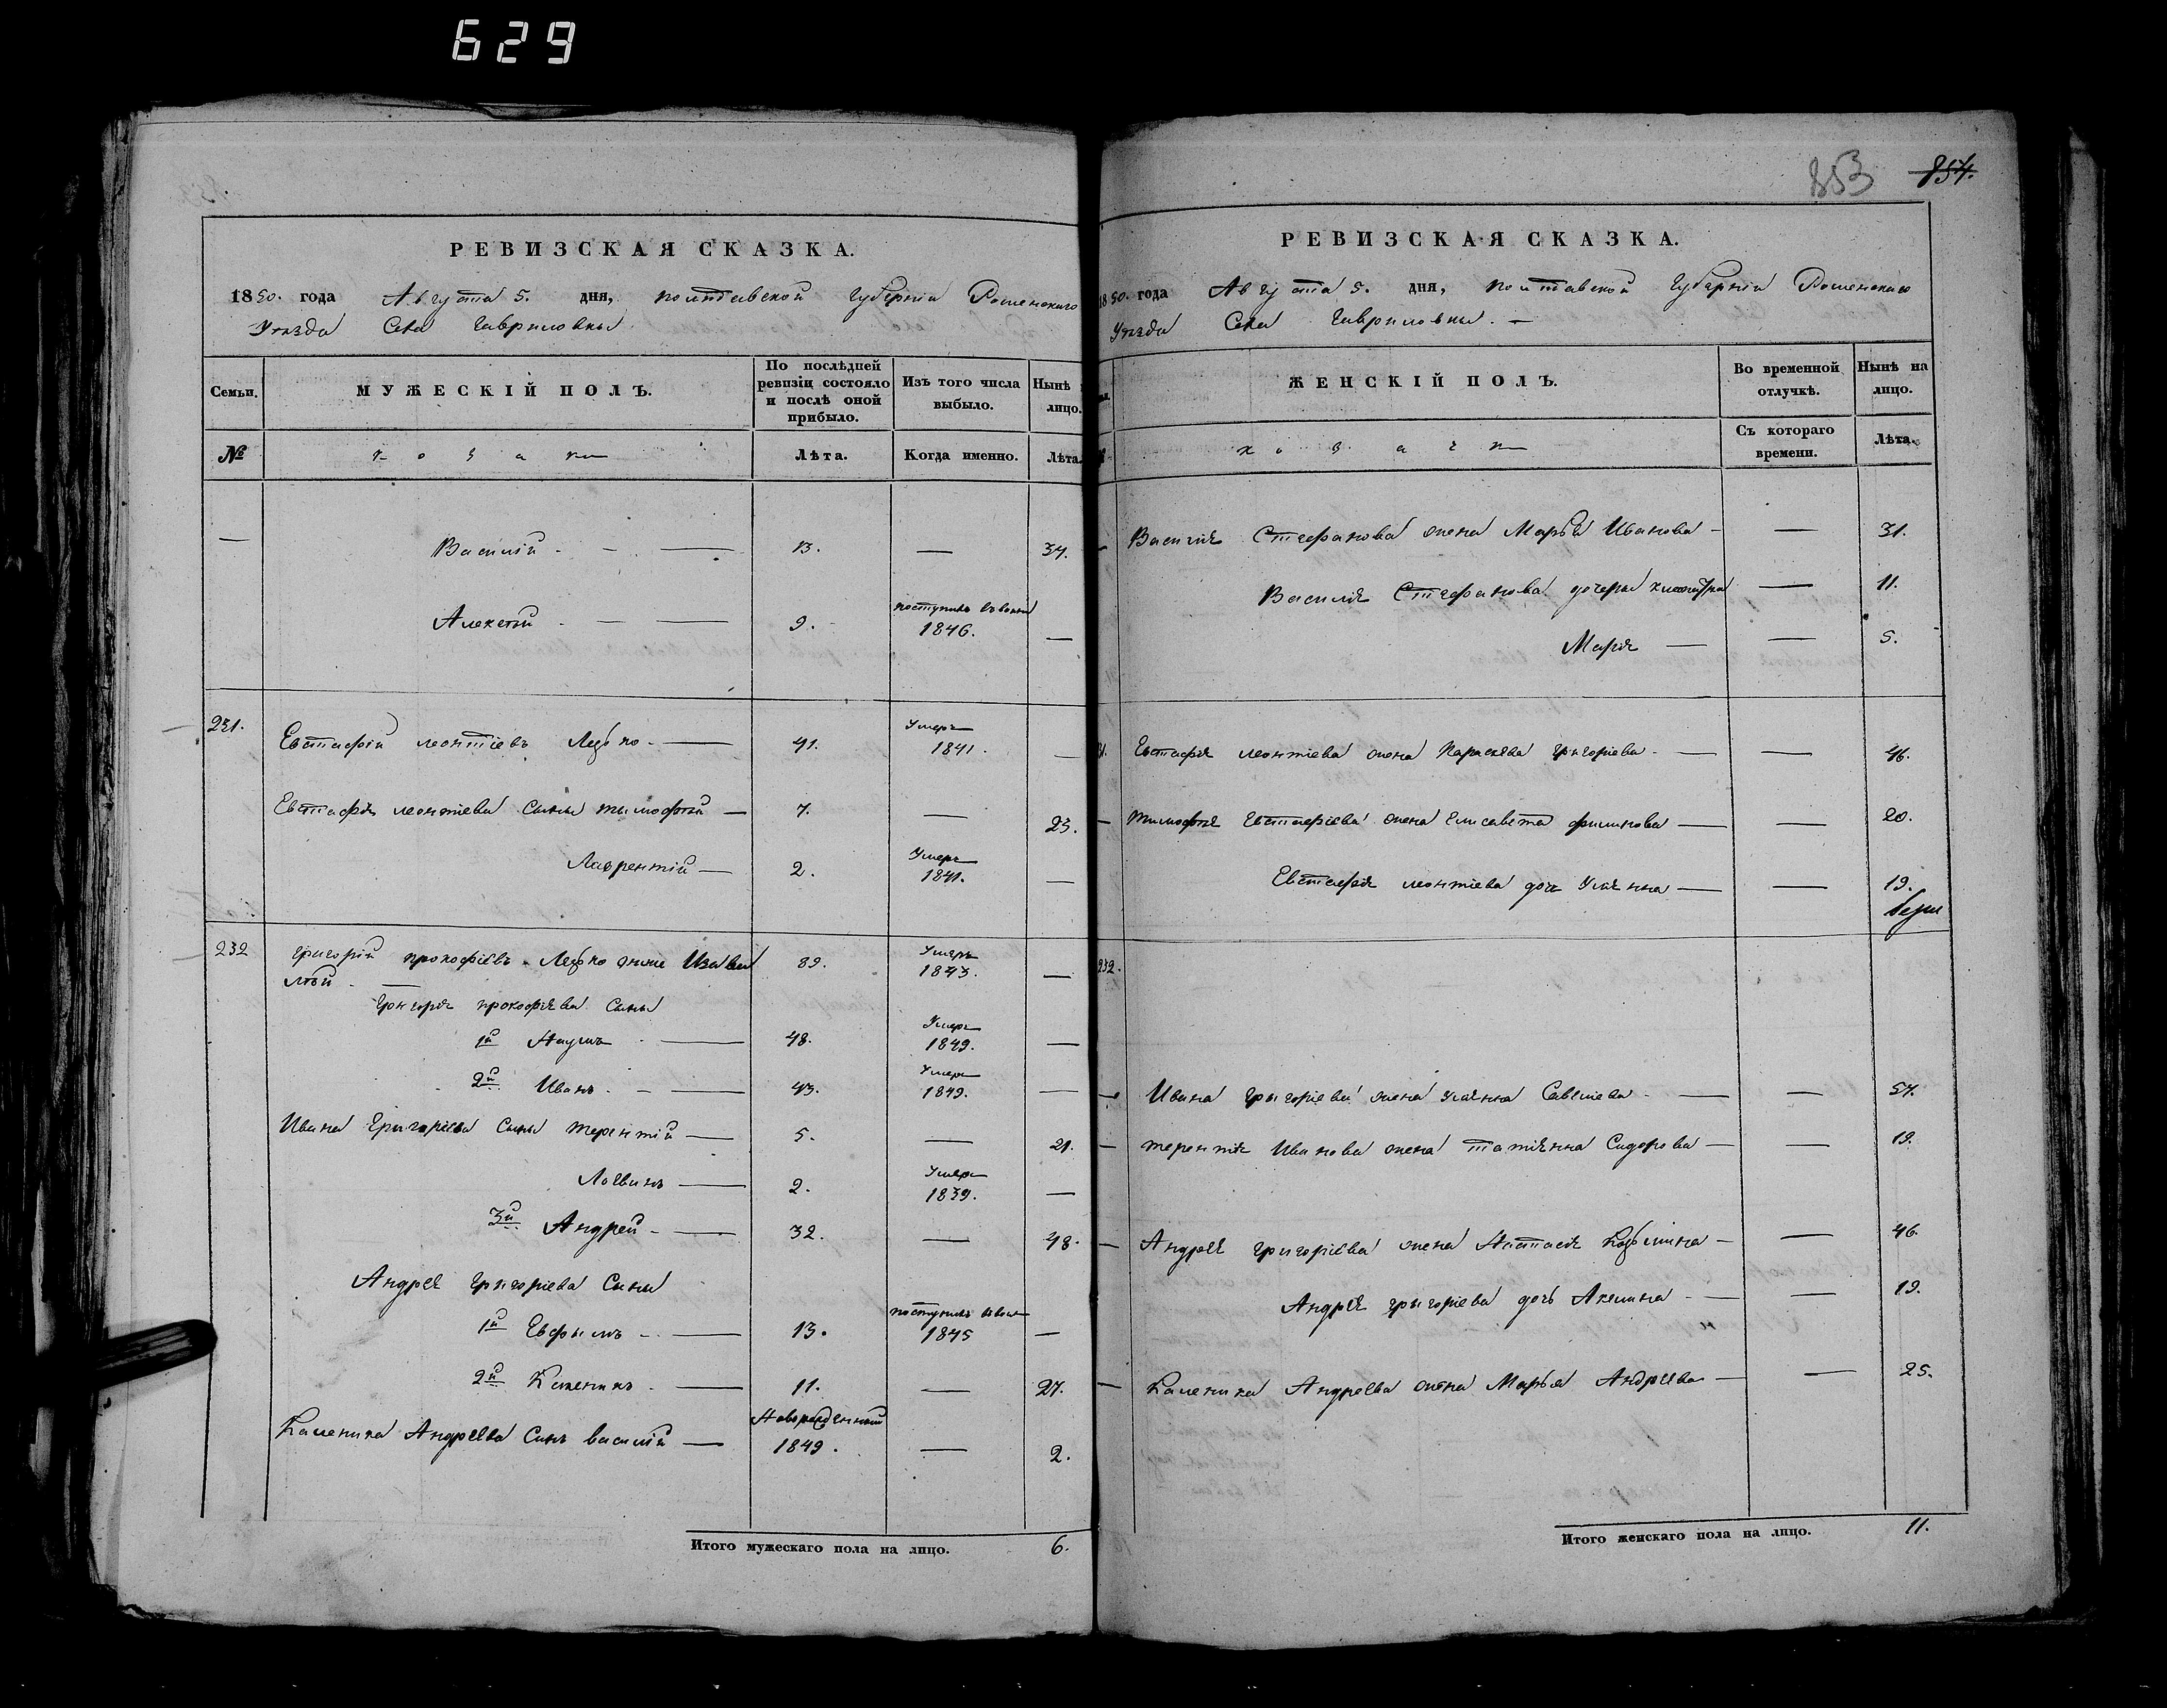 629
РЕВИЗСКАЯ СКАЗКА.
1850. года Августа 5. дня, полтавской губерніи Роменского
Уѣзда Села Гавриловки.
Семьи.
МУЖЕСКІЙ ПОЛЪ.
По послѣдней ревизіи состояло и послѣ оной прибыло.
Изъ того числа выбыло.
Нынѣ
лицо.
№
козаки
Лѣта.
Когда именно.
Лѣта.
— Василій — 13. — 34.
Алексѣй — 9. поступилъ 1846. —
231. Евстафій леонтіевъ — 41. Умеръ 1841. —
Евстафія леонтіева сыны тимофѣй — 7. — 23.
Лаврентій — 2. Умеръ 1841. —
232 Григорій прокофіевъ 89. Умеръ 1843. —
Григорія прокофіева сыны
1й Наумъ — 48. Умеръ 1849. —
2й Иванъ — 43. Умеръ 1849. —
Ивана Григоріева сыны терентій — 5. — 21.
Логвинъ — 2. Умеръ 1839. —
3й Андрей — 32. — 48.
Андрея григоріева сыны
1й Ефимъ — 13. поступилъ 1845 —
2й Каленикъ — 11. — 27.
Каленика Андреева сынъ василій — Новорожденный 1849. — 2.
Итого мужескаго пола на лицо. 6.
853 854.
РЕВИЗСКАЯ СКАЗКА.
1850. года Августа 5. дня, полтавской губерніи Роменского
Уѣзда Села Гавриловки. —
ЖЕНСКІЙ ПОЛЪ.
Во временной отлучкѣ.
Нынѣ на лицо.
козачки
Съ котораго времени.
Лѣта.
— Василія Стефанова жена Марья Иванова — — 31.
Василія Стефанова дочери — 11.
Марія — — 5.
31. Евстафія леонтіева жена Параскева григоріева — — 46.
— тимофѣя Евстафіева жена Елисавета филипова — — 20.
Евстафія леонтіева дочь Уліянна — — 19.
232.
— Ивана григоріева жена уліянна Савеліева — — 57.
— терентія Иванова жена татіянна Сидорова — — 19.
— Андрея григоріева жена Настасія — — 46.
Андрея григоріева дочь Акилина — — 19.
— Каленика Андреева жена Марья Андреева — — 25.
Итого женскаго пола на лицо. 11.